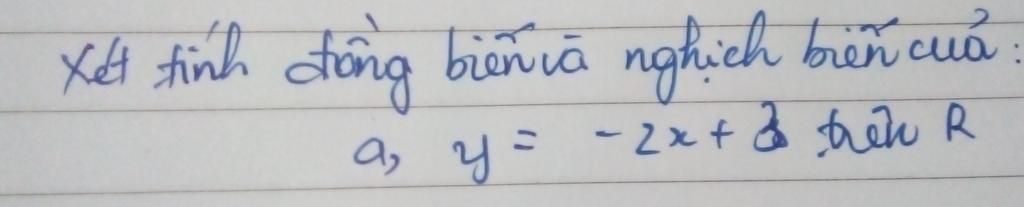 Xét tính đồng biến và nghịch biến của:
a, y = -2x + 3 trên R